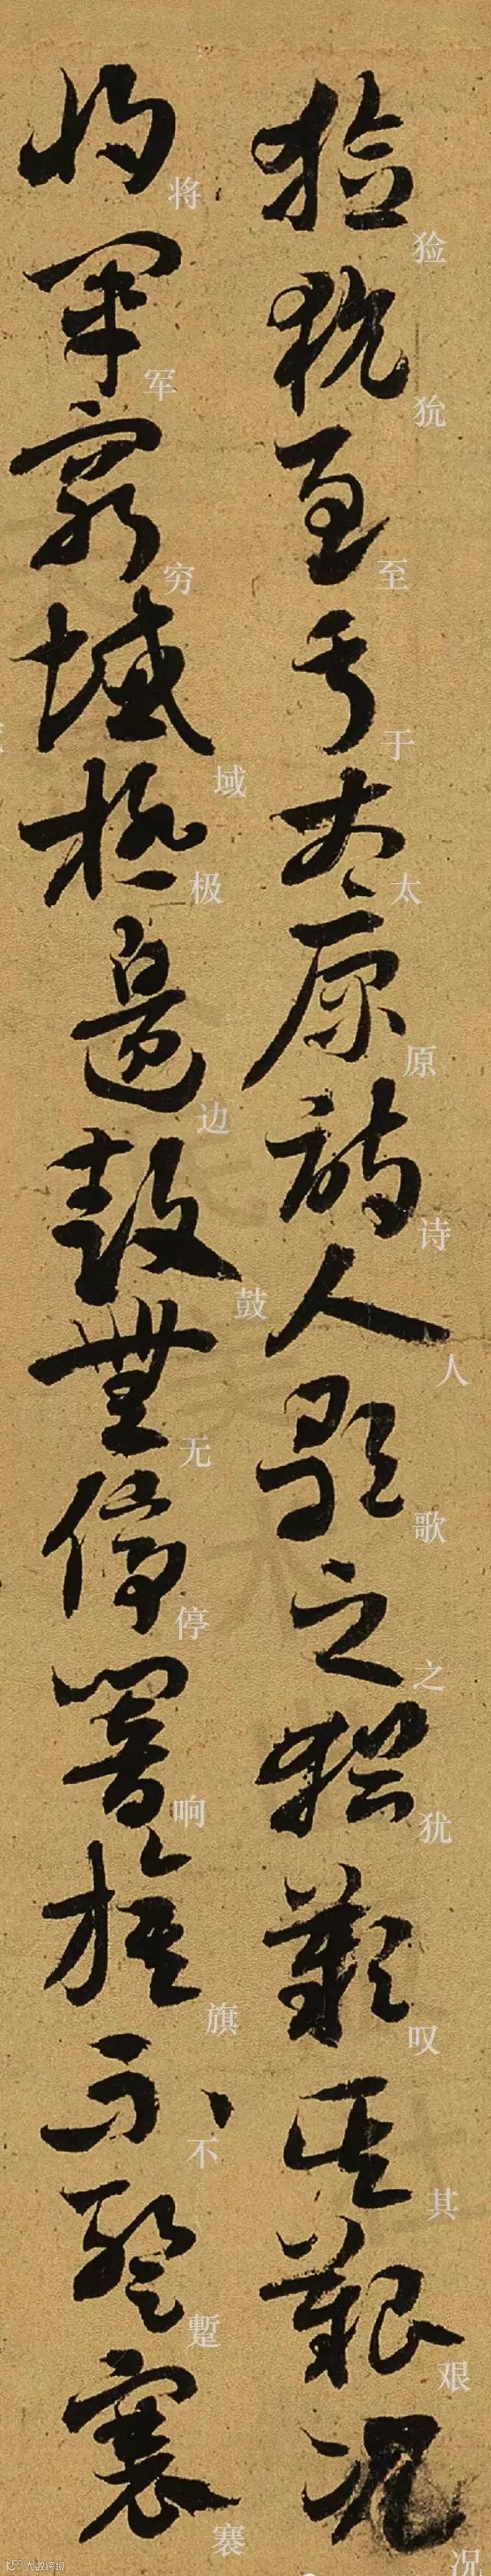 獫狁至于太原詩人歌之猶歎其艱況
猃狁至于太原诗人歌之犹叹其艰况
將軍窮域極邊鼓無停響旗不蹔褰
将军穷域极边鼓无停响旗不蹔褰
大数跨境